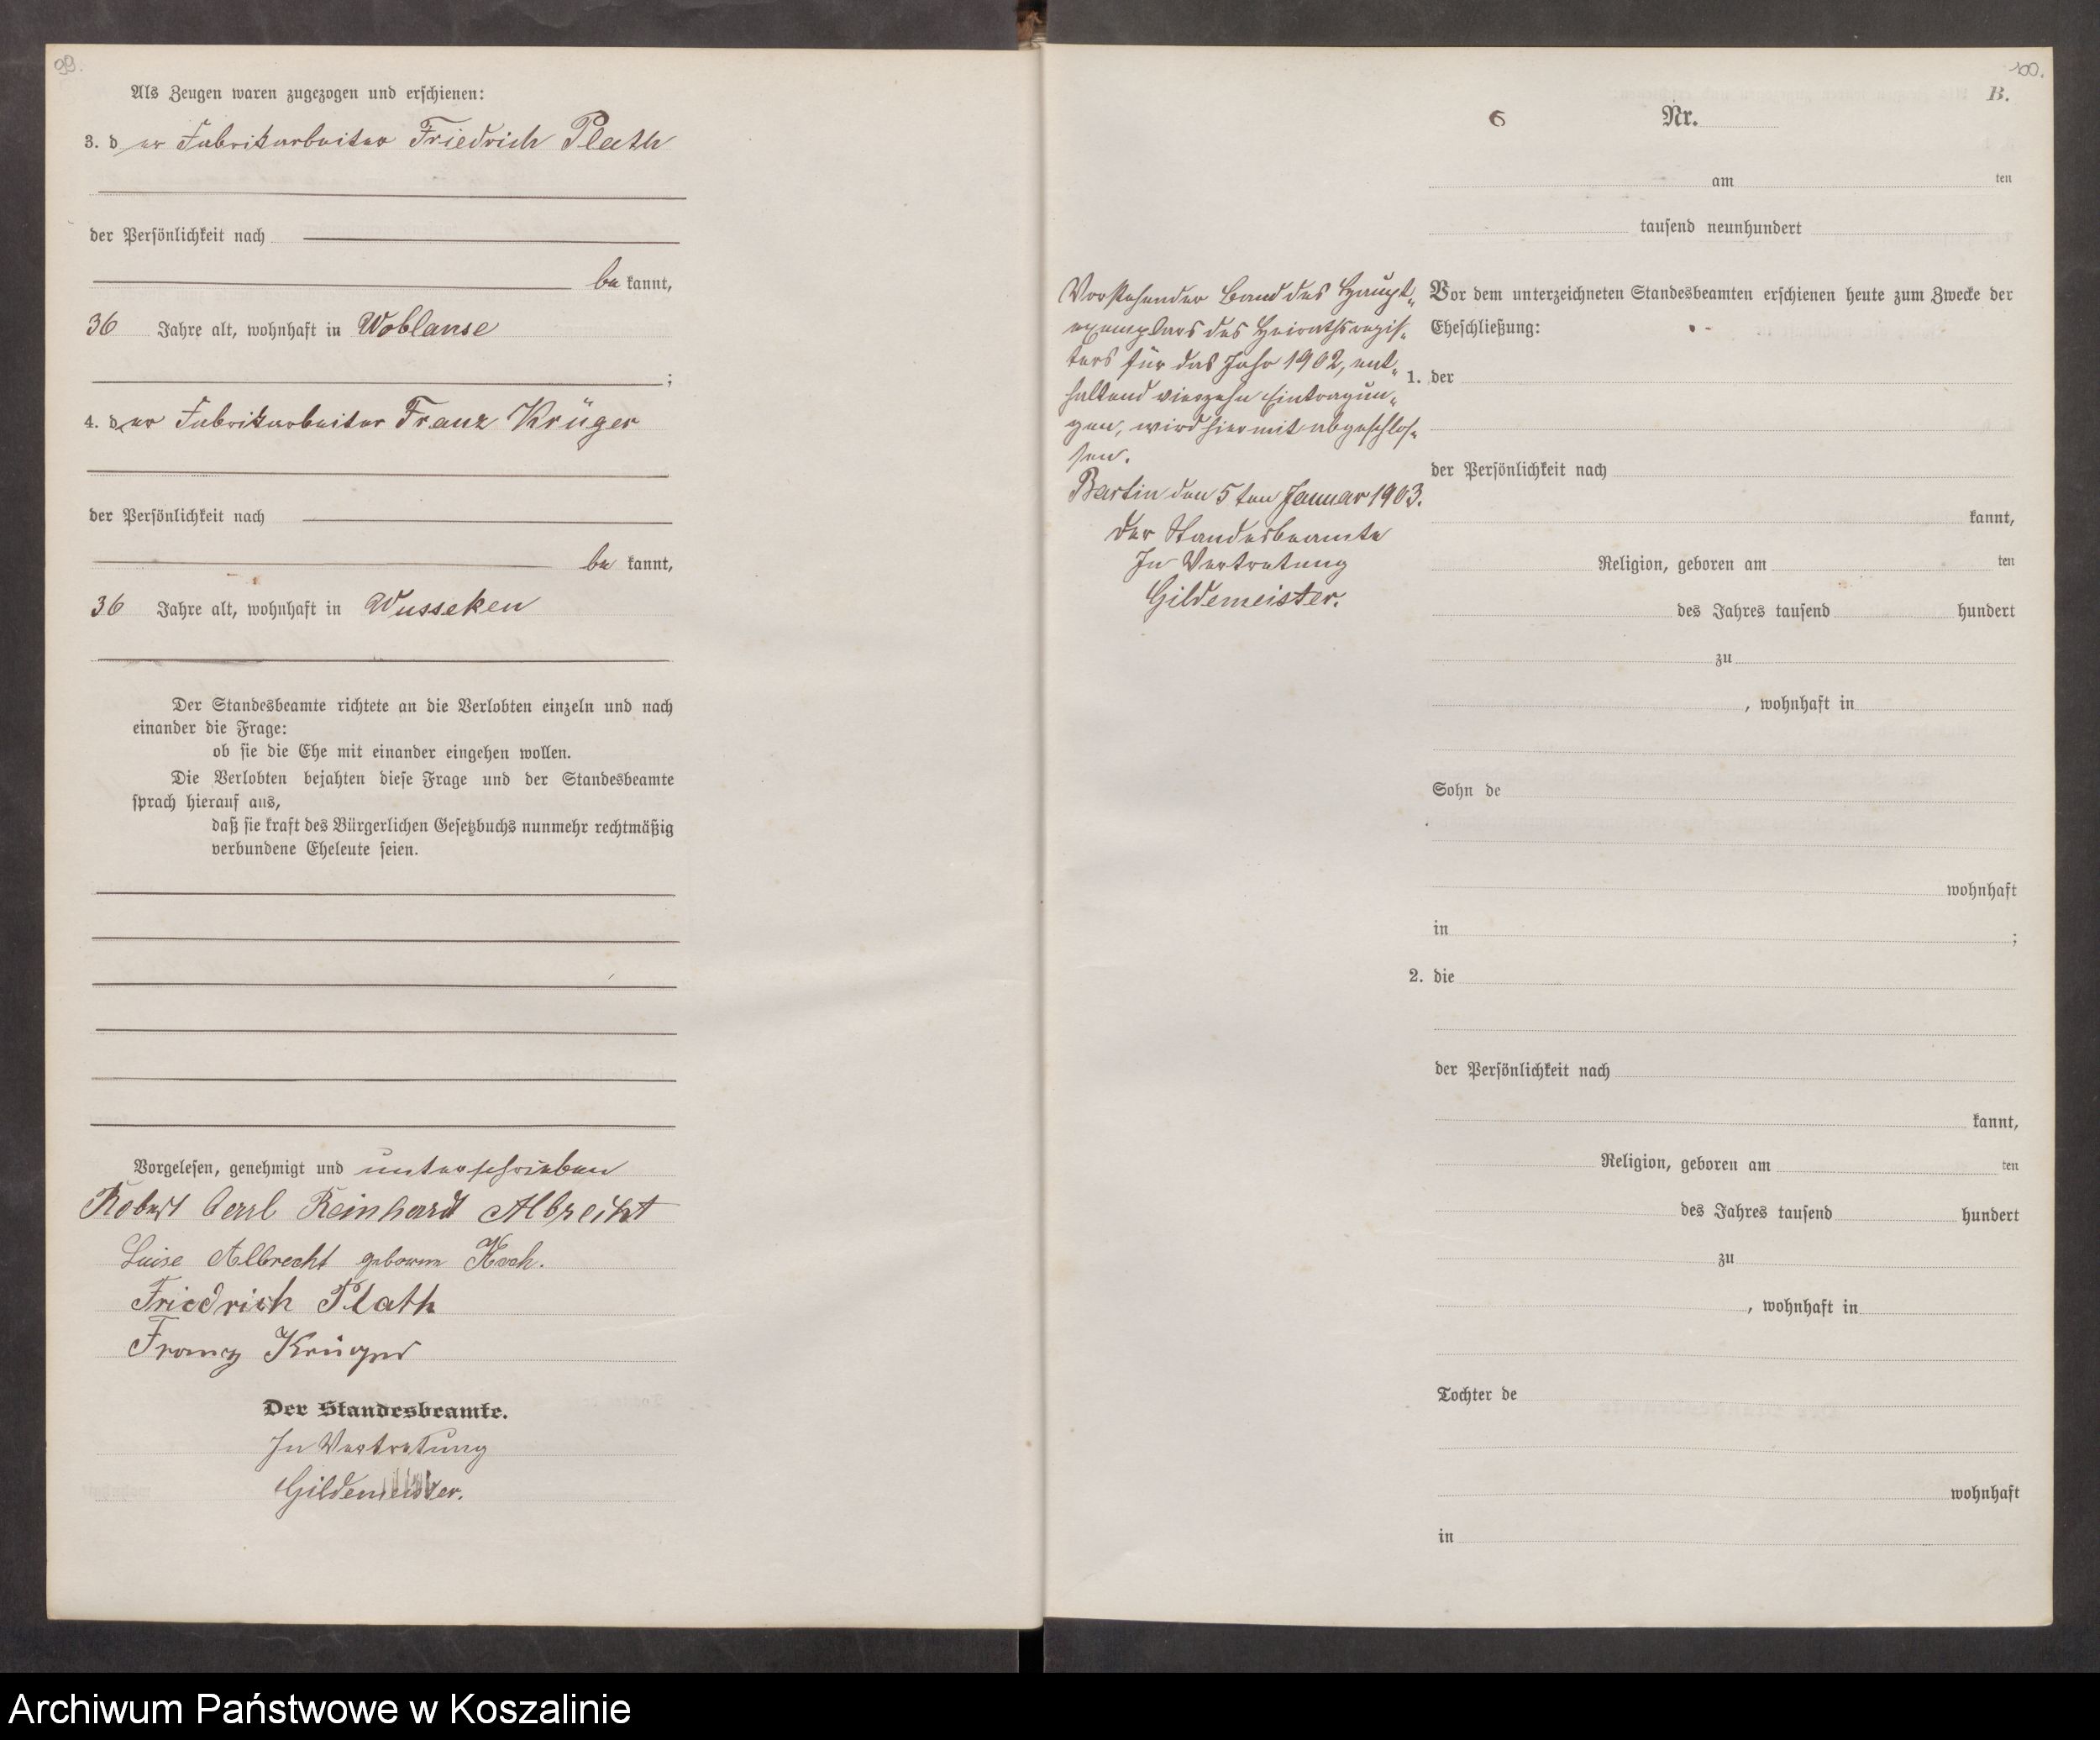 99.
Als Zeugen waren zugezogen und erschienen:
3. der Fabrikarbeiter Friedrich Plath
der Persönlichkeit nach
bekannt,
36 Jahre alt, wohnhaft in Woblanse
;
4. der Fabrikarbeiter Franz Krüger
der Persönlichkeit nach
bekannt,
36 Jahre alt, wohnhaft in Wusseken
Der Standesbeamte richtete an die Verlobten einzeln und nach
einander die Frage:
ob sie die Ehe mit einander eingehen wollen.
Die Verlobten bejahten diese Frage und der Standesbeamte
sprach hierauf aus,
daß sie kraft des Bürgerlichen Gesetzbuchs nunmehr rechtmäßig
verbundene Eheleute seien.
Vorgelesen, genehmigt und unterschrieben
Robert Carl Reinhardt Albrecht
Luise Albrecht geborene Koch.
Friedrich Plath
Franz Krüger
Der Standesbeamte.
In Vertretung
Gildemeister.
100.
B.
6 Nr.
am ten
tausend neunhundert
Vorstehender Band des Haupt-
exemplars des Heirathsregis-
ters für das Jahr 1902, ent-
haltend vierzehn Eintragun-
gen, wird hiermit abgeschlos-
sen.
Bartin den 5ten Januar 1903.
Der Standesbeamte
In Vertretung
Gildemeister.
Vor dem unterzeichneten Standesbeamten erschienen heute zum Zwecke der
Eheschließung:
1. der
der Persönlichkeit nach
kannt,
Religion, geboren am ten
des Jahres tausend hundert
zu
, wohnhaft in
Sohn de
wohnhaft
in ;
2. die
der Persönlichkeit nach
kannt,
Religion, geboren am ten
des Jahres tausend hundert
zu
, wohnhaft in
Tochter de
wohnhaft
in
Archiwum Państwowe w Koszalinie